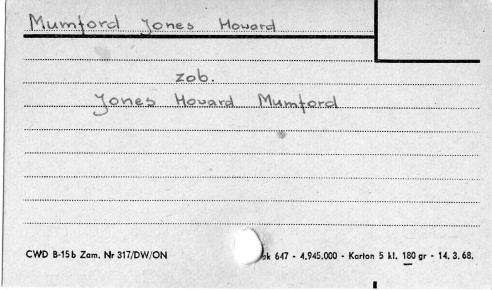 Mumford Jones Howard
zob.
Jones Howard Mumford
CWD B-15b Zam. Nr 317/DW/ON sk 647 - 4.945.000 - Karton 5 kl. 180 gr - 14. 3. 68.